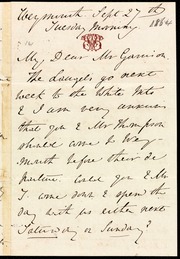 Weymouth Sept 27th
Tuesday Morning 1864
My Dear Mr Garrison
The Dauges go next
week to the White Mts
& I am very anxious
that you & Mr Thompson
should come to Wey-
mouth before their de-
parture. Could you & Mr
T. come down & spend the
day with us either next
Saturday or Sunday?